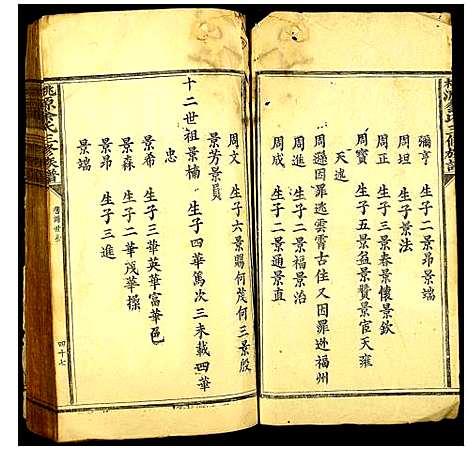 彌亨 生子二景昂景端
周坦 生子景法
周正 生子三景春景懷景欽
周寶 生子五景益景贊景宦天雍
天述
周遜因罪逃雲霄古住又因罪迯福州
周進 生子二景福景治
周成 生子二景通景直
周文 生子六景賜何茂何三景殷
景芳景員
十二世祖景楠 生子四華篤次三未載四華
忠
景希 生子三英華富華邑
景森 生子二華茂華操
景昂 生子三進
景端
桃源余氏三修族譜
四十七